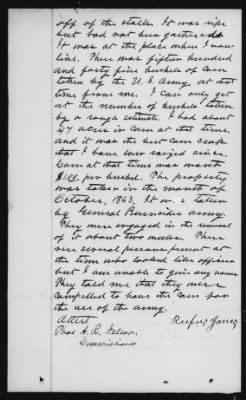 off of the stalks. It was ripe
but had not been gathered.
It was at the place where I now
live. There was fifteen hundred
and forty five bushels of corn
taken by the U.S. Army at that
time from me. I can only get
at the number of bushels taken
by a rough estimate. I had about
47 acres in corn at that time,
and it was the best corn crop
that I have ever raised since.
Corn at that time was worth
per bushel. The property
was taken in the month of
October, 1863. It was taken
by General Burnside army.
They were engaged in the removal
of it about two weeks. There
were several persons present at
the time who looked like officers
but I am unable to give any names
They told me that they were
compelled to have the corn for
the use of the army.
Attest Rufus Jones
Thos A. R. Nelson,
Commissioner